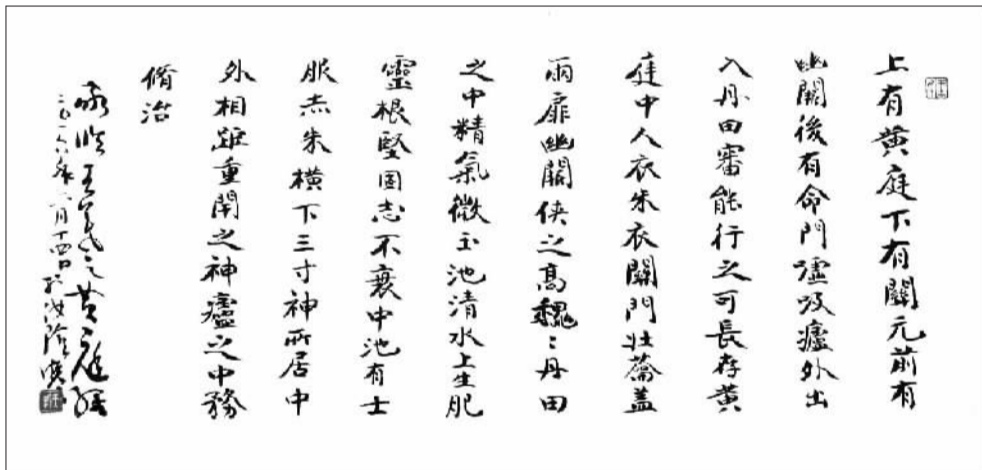 上有黄庭下有關元前有
幽闕後有命門噓吸廬外出
入丹田審能行之可長存黄
庭中人衣朱衣關門壯蘥盖
兩扉幽關俠之髙魏〻丹田
之中精氣微玉池清水上生肥
靈根堅固志不衰中池有士
服赤朱横下三寸神所居中
外相距重閉之神廬之中務
脩治
臨王羲之黄庭經
二〇一六年二月十四日